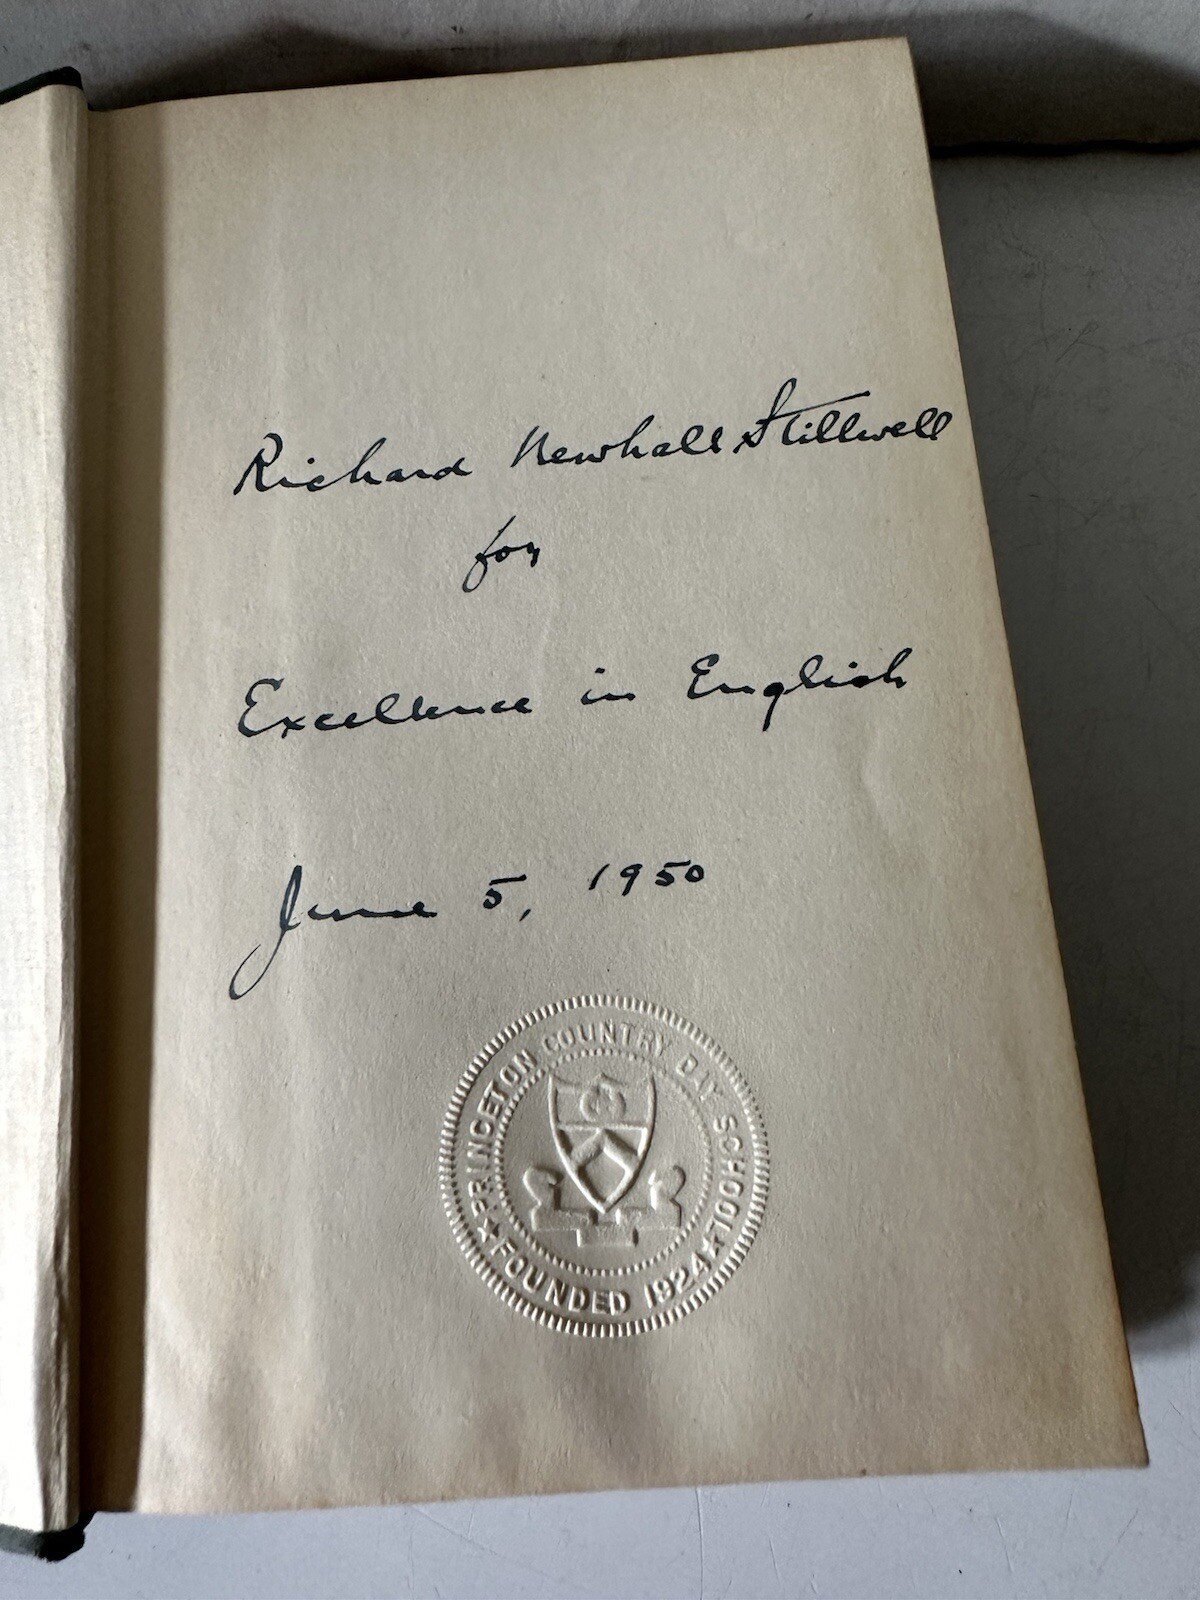 Richard Newhall Stillwell
for
Excellence in English
June 5, 1950
PRINCETON COUNTRY DAY SCHOOL
★ FOUNDED 1924 ★